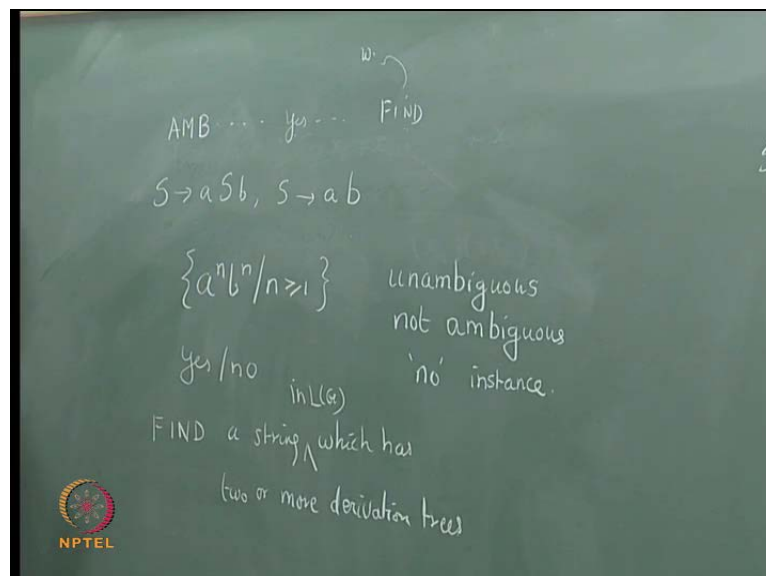 w.
AMB .... yes ... FIND
S → aSb, S → ab
{aⁿbⁿ/n ≥ 1} unambiguous
not ambiguous
yes/no 'no' instance.
in L(G)
FIND a string ∧ which has
two or more derivation trees
NPTEL